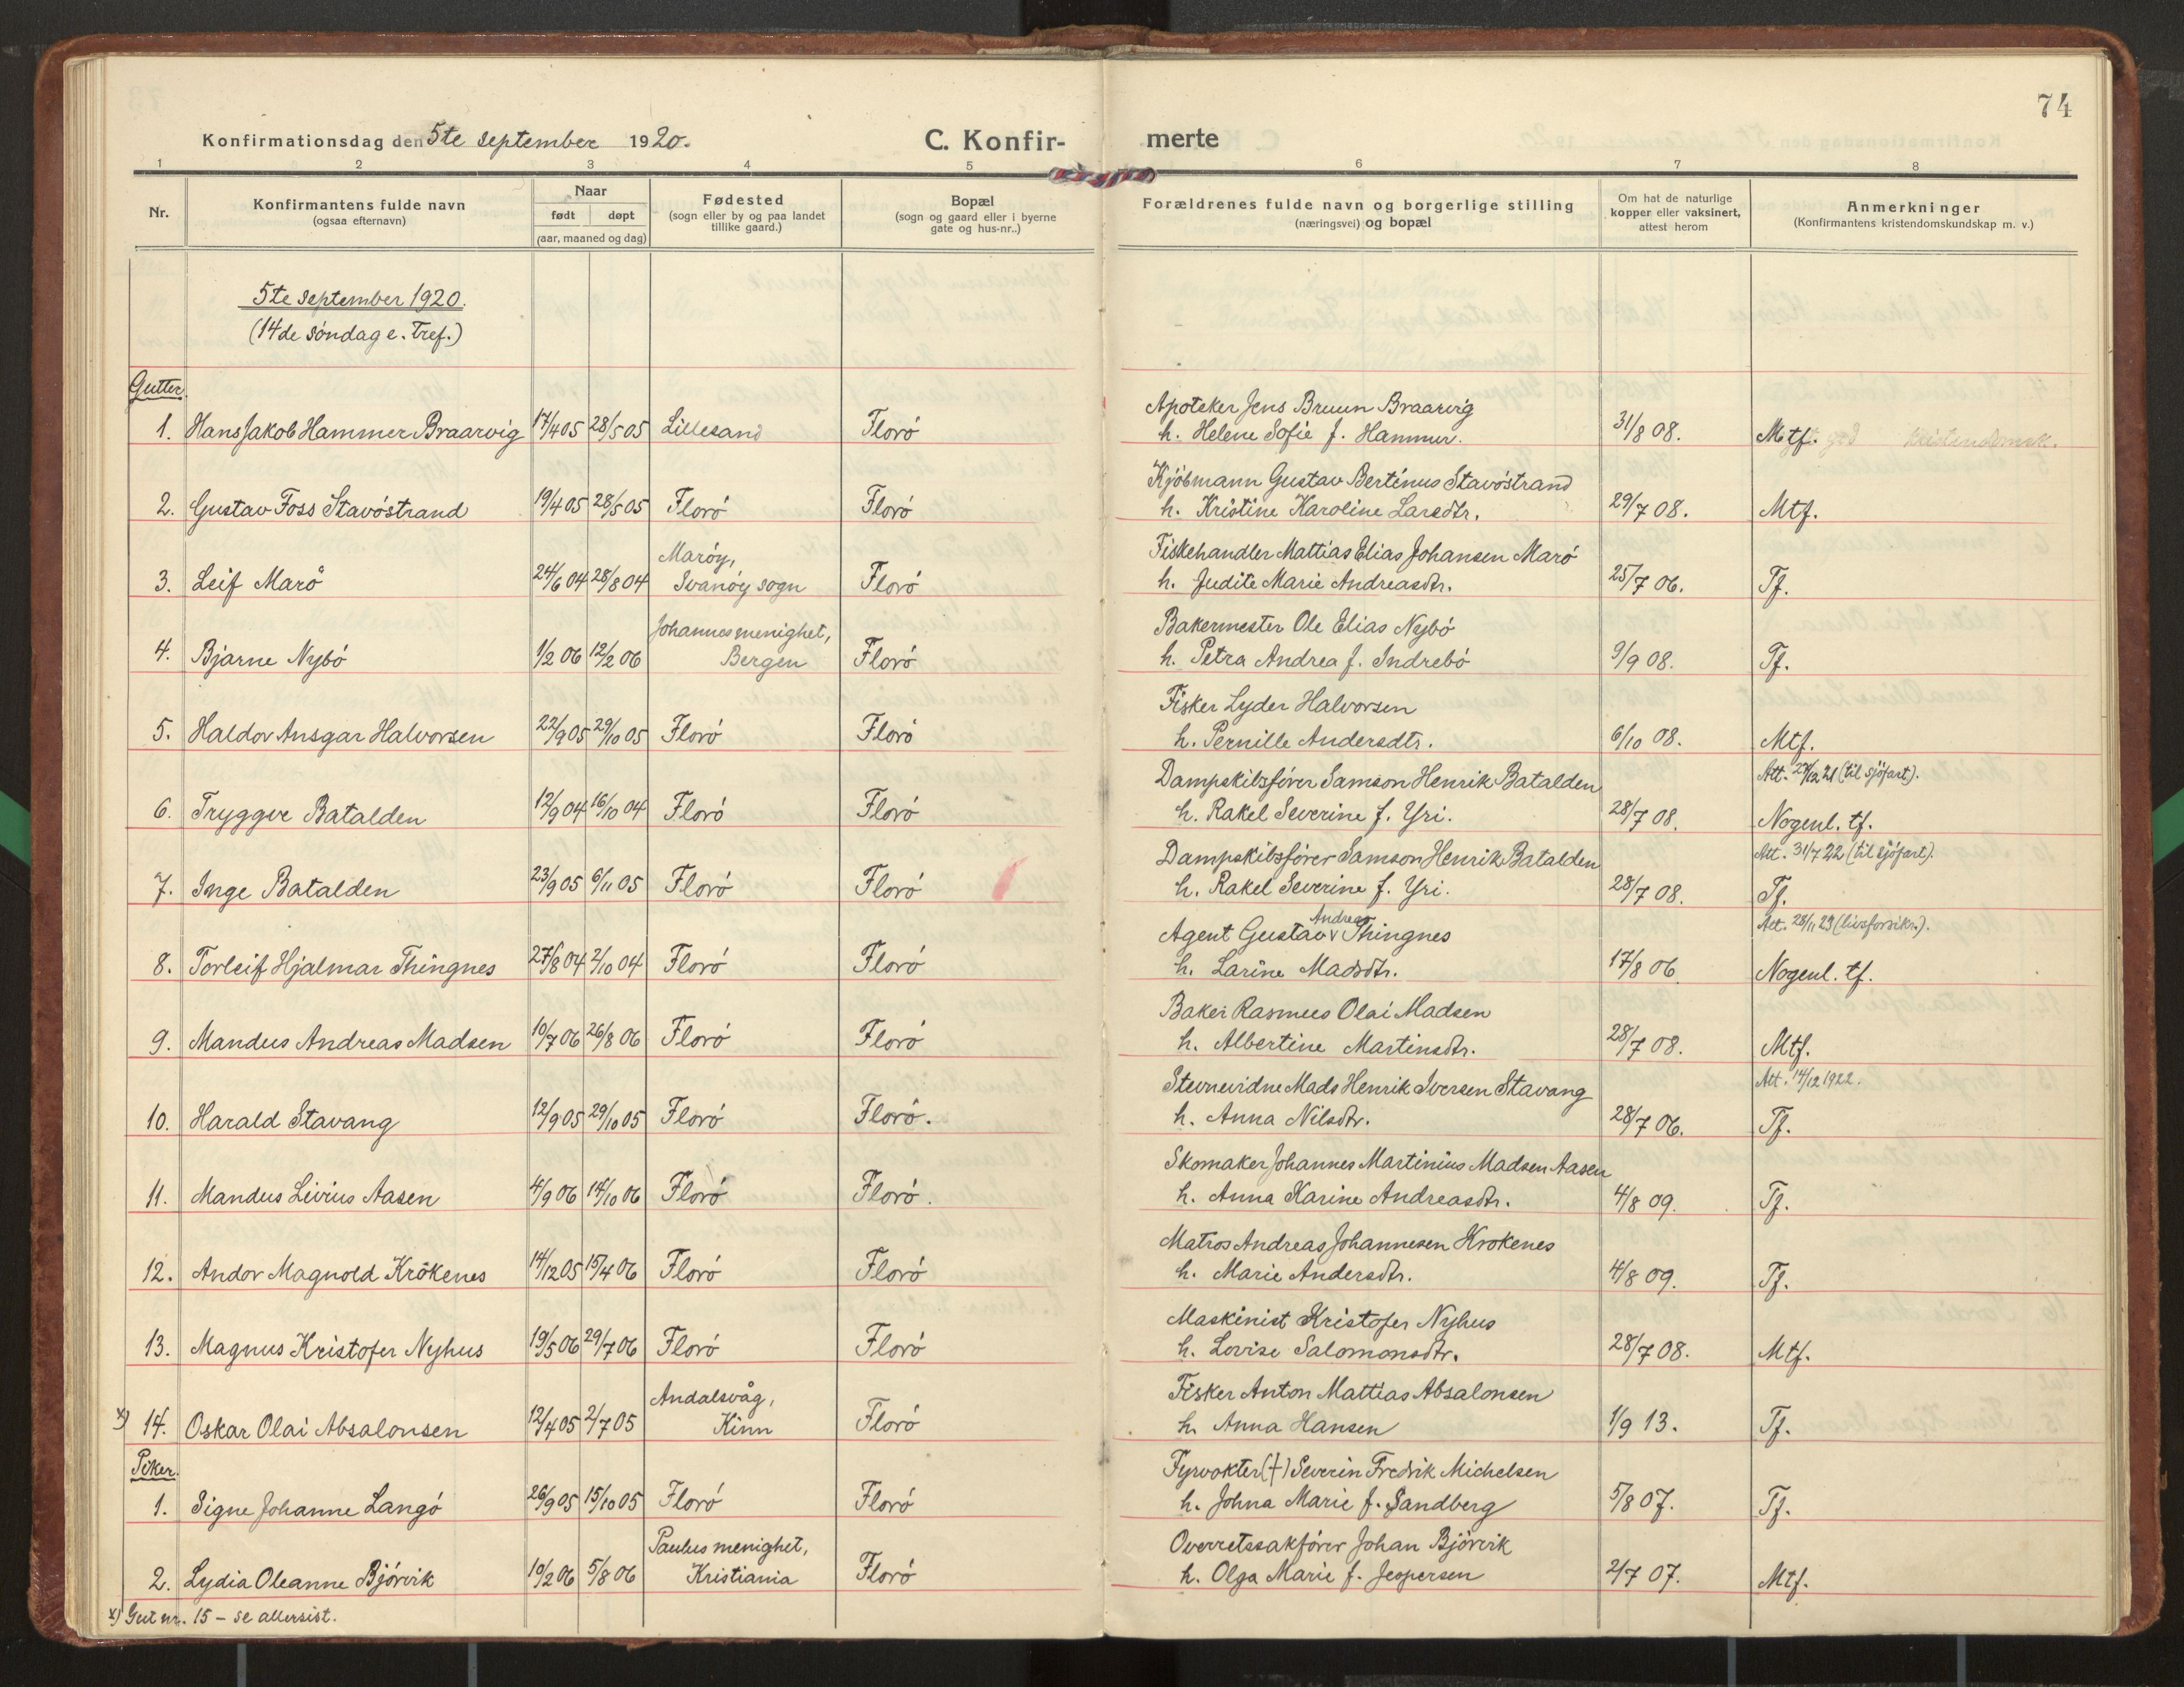 74
Konfirmationsdag den 5te september 1920.
C. Konfirmerte
1 2 3 4 5 6 7 8
Nr.
Konfirmantens fulde navn
(ogsaa efternavn)
Naar
født døpt
(aar, maaned og dag)
Fødested
(sogn eller by og paa landet
tillike gaard.)
Bopæl
(sogn og gaard eller i byerne
gate og hus-nr..)
Forældrenes fulde navn og borgerlige stilling
(næringsvei) og bopæl
Om hat de naturlige
kopper eller vaksinert,
attest herom
Anmerkninger
(Konfirmantens kristendomskundskap m. v.)
5te september 1920.
(14de søndag e. Tref.)
Gutter.
Apoteker Jens Bruun Braarvig
1. Hans Jakob Hammer Braarvig 17/4 05 28/5 05 Lillesand Florø h. Helene Sofie f. Hammer. 31/8 08. Mtf.
Kjøbmann Gustav Bertinus Stavøstrand
2. Gustav Foss Stavøstrand 19/4 05 28/5 05 Florø Florø h. Kristine Karoline Larsdtr. 29/7 08. Mtf.
Marøy, Fiskehandler Mattias Elias Johansen Marø
3. Leif Marø 24/6 04 28/8 04 Svanøy sogn Florø h. Judite Marie Andreasdtr. 25/7 06. Tf.
Johannesmenighet, Bakermester Ole Elias Nybø
4. Bjarne Nybø 1/2 06 12/2 06 Bergen Florø h. Petra Andrea f. Indrebø 9/9 08. Tf.
Fisker Lyder Halvorsen
5. Haldor Ansgar Halvorsen 22/9 05 29/10 05 Florø Florø h. Pernille Andersdtr. 6/10 08. Mtf.
Dampskibsfører Samson Henrik Batalden Att. 27/12 21 (til sjøfart).
6. Tryggve Batalden 12/9 04 16/10 04 Florø Florø h. Rakel Severine f. Yri. 28/7 08. Nogenl. tf.
Dampskibsfører Samson Henrik Batalden Att. 31/7 22 (til sjøfart).
7. Inge Batalden 23/9 05 6/11 05 Florø Florø h. Rakel Severine f. Yri. 28/7 08. Tf.
Agent Gustav Andreas Thingnes Att. 28/11 23 (livsforsikr.).
8. Torleif Hjalmar Thingnes 27/8 04 2/10 04 Florø Florø h. Larine Madsdtr. 17/8 06 Nogenl. tf.
Baker Rasmus Olai Madsen
9. Mandus Andreas Madsen 10/7 06 26/8 06 Florø Florø h. Albertine Martinsdtr. 28/7 08. Mtf.
Stevnevidne Mads Henrik Iversen Stavang Att. 14/12 1922.
10. Harald Stavang 12/9 05 29/10 05 Florø Florø. h. Anna Nilsdtr. 28/7 06. Tf.
Skomaker Johannes Martinius Madsen Aasen
11. Mandus Livius Aasen 4/9 06 14/10 06 Florø Florø. h. Anna Karine Andreasdtr. 4/8 09. Tf.
Matros Andreas Johannesen Krokenes
12. Andor Magnold Krökenes 14/12 05 15/4 06 Florø Florø h. Marie Andersdtr. 4/8 09. Tf.
Maskinist Kristofer Nyhus
13. Magnus Kristofer Nyhus 19/5 06 29/7 06 Florø Florø h. Lovise Salomonsdtr. 28/7 08. Mtf.
Andalsvåg, Fisker Anton Mattias Absalonsen
x) 14. Oskar Olai Absalonsen 12/4 05 2/7 05 Kinn Florø h. Anna Hansen 1/9 13. Tf.
Piker.
Fyrvokter (†) Severin Fredrik Michelsen
1. Signe Johanne Langø 26/9 05 15/10 05 Florø Florø h. Johna Marie f. Sandberg 5/8 07. Tf.
Paulus menighet, Overretssakfører Johan Bjørvik
2. Lydia Oleanne Bjørvik 10/2 06 5/8 06 Kristiania Florø h. Olga Marie f. Jespersen 2/7 07. Mtf.
x) Gut nr. 15 – se allersist.